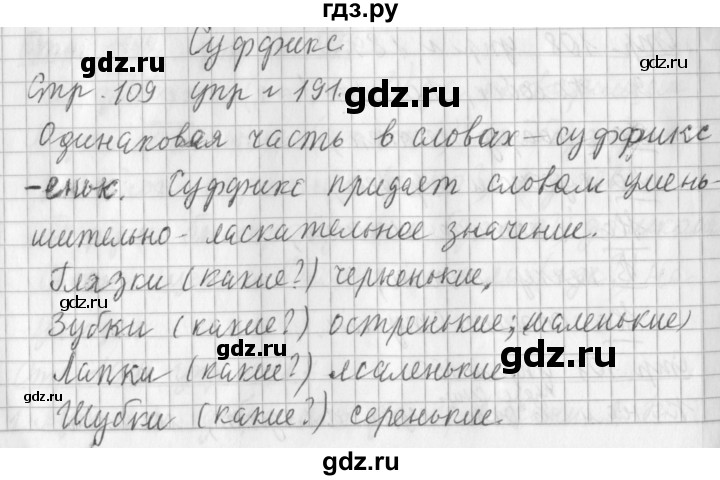 гдз.ру
Суффикс.
Стр. 109 упр. 191.
Одинаковая часть в словах – суффикс
-еньк. Суффикс придает словам умень-
шительно-ласкательное значение.
Глазки (какие?) черненькие,
Зубки (какие?) остренькие, (маленькие)
Лапки (какие?) маленькие
Шубки (какие?) серенькие.
gdz.ru
gdz.ru
gdz.ru
gdz.ru
gdz.ru
gdz.ru
gdz.ru
gdz.ru
gdz.ru